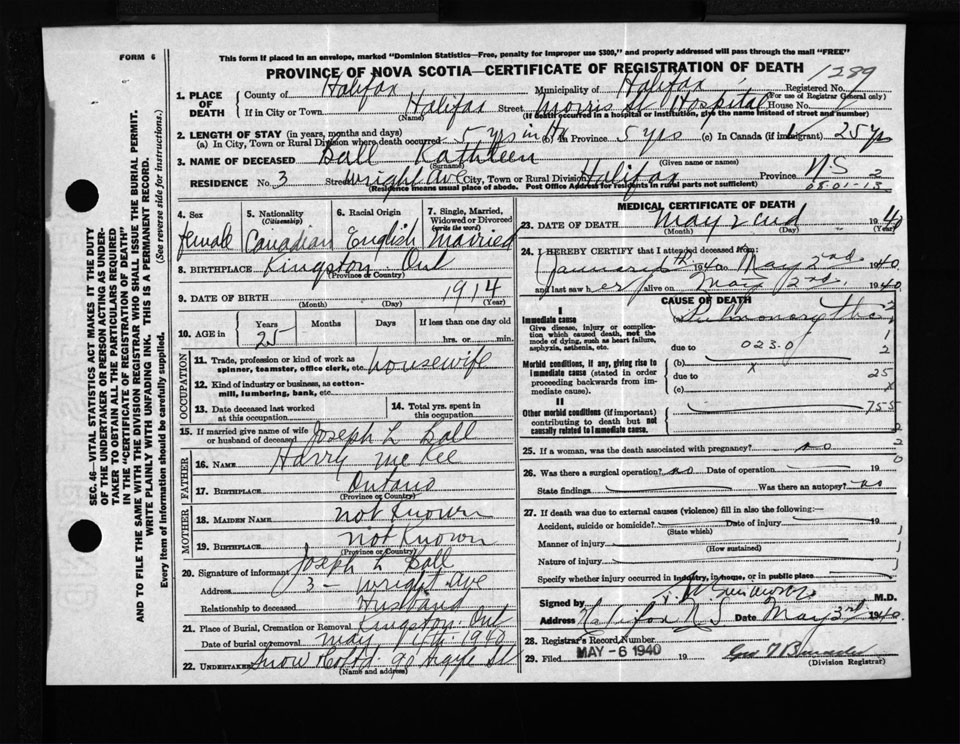 FORM 6
This form if placed in an envelope, marked "Dominion Statistics—Free, penalty for improper use $300," and properly addressed will pass through the mail "FREE"
PROVINCE OF NOVA SCOTIA—CERTIFICATE OF REGISTRATION OF DEATH
1289
1. PLACE OF DEATH
County of Halifax Municipality of Halifax Registered No.
(For use of Registrar General only)
If in City or Town Halifax Street Morris St Hospital House No.
(Name) (If death occurred in a hospital or institution, give the name instead of street and number)
2. LENGTH OF STAY (in years, months and days)
(a) In City, Town or Rural Division where death occurred 5 yrs in Hx (b) In Province 5 yrs (c) In Canada (if immigrant) 25 yrs
3. NAME OF DECEASED Ball Kathleen
(Surname) (Given name or names)
RESIDENCE No. 3 Street Wright Ave City, Town or Rural Division Halifax Province NS 2
(Residence means usual place of abode. Post Office Address for residents in rural parts not sufficient) 08-01-13
4. Sex female
5. Nationality (Citizenship) Canadian
6. Racial Origin English
7. Single, Married, Widowed or Divorced (write the word) Married
8. BIRTHPLACE Kingston Ont
(Province or Country)
9. DATE OF BIRTH 1914
(Month) (Day) (Year)
10. AGE in Years Months Days If less than one day
25 hrs. or min.
OCCUPATION
11. Trade, profession or kind of work as spinner, teamster, office clerk, etc. housewife
12. Kind of industry or business, as cotton-mill, lumbering, bank, etc.
13. Date deceased last worked at this occupation
14. Total yrs. spent in this occupation
15. If married give name of wife or husband of deceased Joseph L Ball
FATHER
16. NAME Harry McKee
17. BIRTHPLACE Ontario
(Province or Country)
MOTHER
18. MAIDEN NAME not known
19. BIRTHPLACE not known
(Province or Country)
20. Signature of informant Joseph L Ball
Address 3 - Wright Ave
Relationship to deceased Husband
21. Place of Burial, Cremation or Removal Kingston Ont
Date of burial or removal May 1940
22. UNDERTAKER Snow Co Ltd 90 Argyle St
(Name and address)
MEDICAL CERTIFICATE OF DEATH
23. DATE OF DEATH May 2nd 1940
(Month) (Day) (Year)
24. I HEREBY CERTIFY that I attended deceased from:
January 1940 to May 2nd 1940
and last saw her alive on May 2nd, 1940
CAUSE OF DEATH
I
Immediate cause
Give disease, injury or complication which caused death, not the mode of dying, such as heart failure, asphyxia, asthenia, etc.
Pulmonary
due to 023.0
Morbid conditions, if any, giving rise to immediate cause (stated in order proceeding backwards from immediate cause).
(b) x
due to 25
(c) x
II
Other morbid conditions (if important) contributing to death but not causally related to immediate cause.
755
25. If a woman, was the death associated with pregnancy? no
26. Was there a surgical operation? no Date of operation 19
State findings Was there an autopsy? no
27. If death was due to external causes (violence) fill in also the following:—
Accident, suicide or homicide? Date of injury 19
(State which)
Manner of injury
(How sustained)
Nature of injury
Specify whether injury occurred in industry, in home, or in public place
Signed by M.D.
Address Halifax N.S Date May 3rd 1940
28. Registrar's Record Number
29. Filed MAY - 6 1940 19
(Division Registrar)
SEC. 46—VITAL STATISTICS ACT MAKES IT THE DUTY
OF THE UNDERTAKER OR PERSON ACTING AS UNDERTAKER TO OBTAIN ALL THE PARTICULARS REQUIRED
IN THE "CERTIFICATE OF REGISTRATION OF DEATH"
AND TO FILE THE SAME WITH THE DIVISION REGISTRAR WHO SHALL ISSUE THE BURIAL PERMIT.
WRITE PLAINLY WITH UNFADING INK. THIS IS A PERMANENT RECORD.
Every item of information should be carefully supplied. (See reverse side for instructions.)